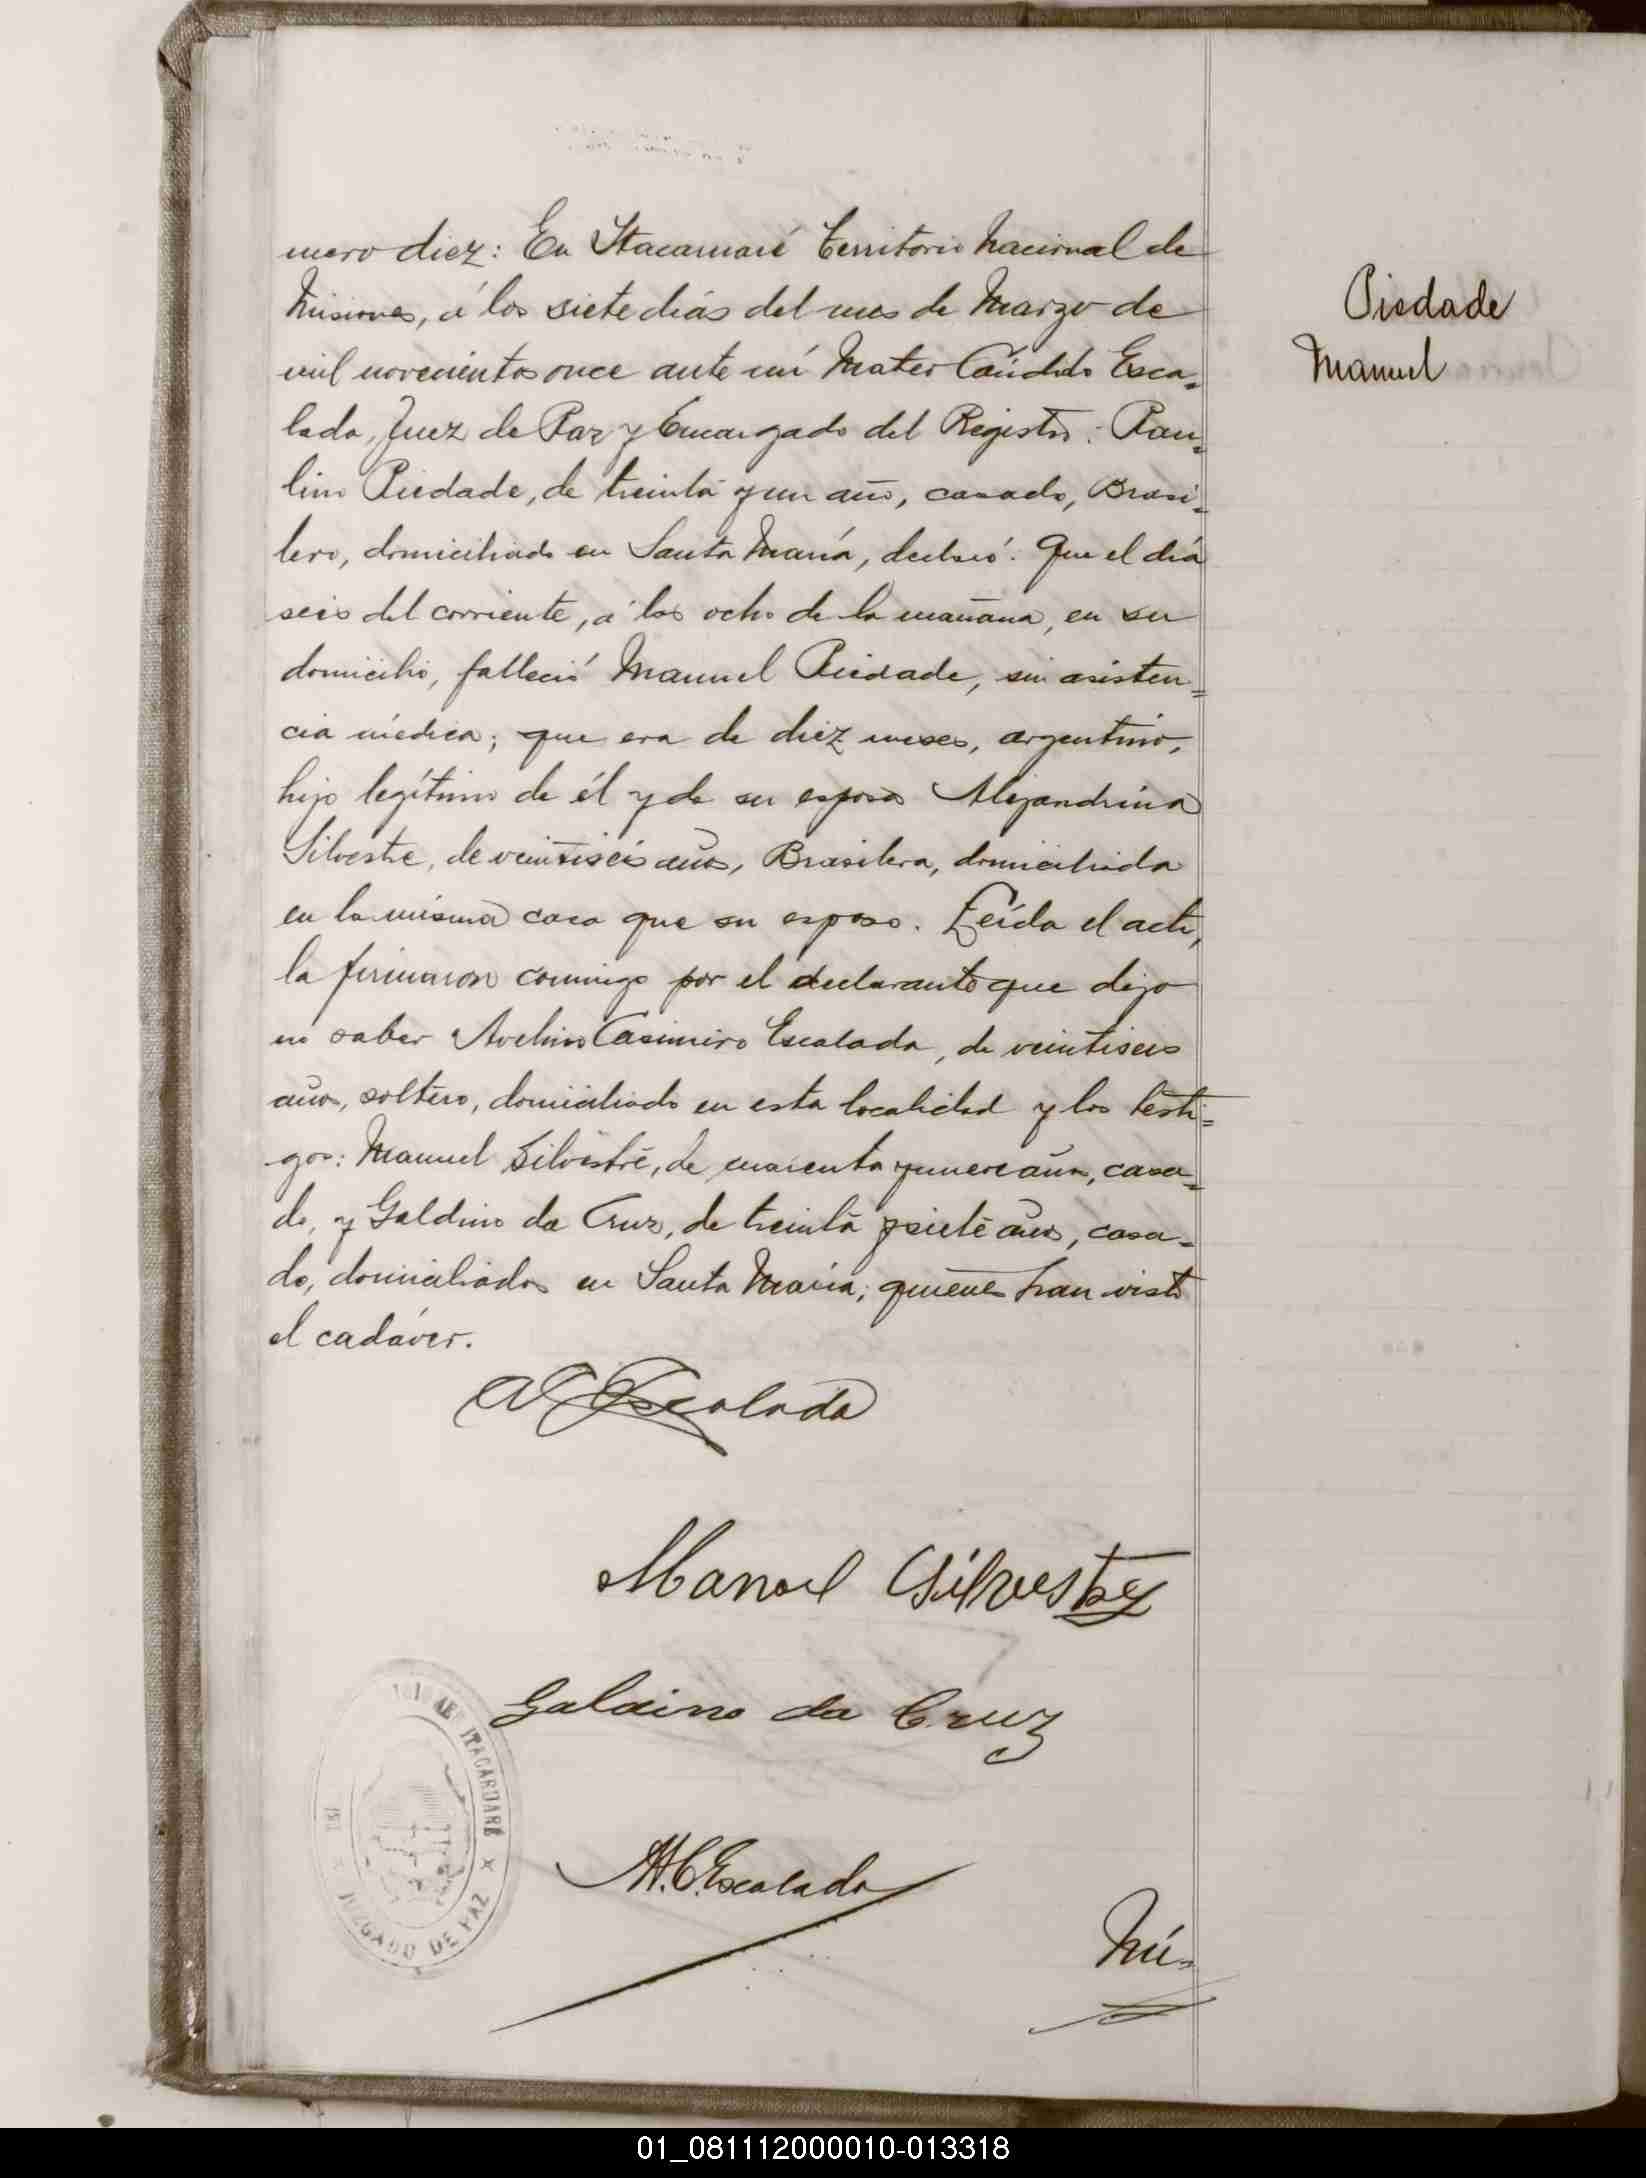 mero diez: En Itacaruaré Territorio Nacional de
Misiones, á los siete dias del mes de Marzo de
mil novecientos once ante mí Mateo Cándido Esca=
lada, Juez de Paz y Encargado del Registro: Pau=
lino Piedade, de treinta y un año, casado, Brasi=
lero, domiciliado en Santa María, declaró: Que el día
seis del corriente, á las ocho de la mañana, en su
domicilio, falleció Manuel Piedade, sin asisten=
cia médica; que era de diez meses, argentino,
hijo legítimo de él y de su esposa Alejandrina
Silvestre, de veintiseis años, Brasilera, domiciliada
en la misma casa que su esposo. Leída el acta,
la firmaron conmigo por el declarante que dijo
no saber Avelino Casimiro Escalada, de veintiseis
años, soltero, domiciliado en esta localidad y los testi=
gos: Manuel Silvestre, de cuarenta y nueve años, casa=
do, y Galdino da Cruz, de treinta y siete años, casa=
do, domiciliados en Santa María; quienes han visto
el cadáver.
A C Escalada
Manoel Silvestre
Galdino da Cruz
M. C. Escalada
Nú=
Piedade
Manuel
ITACARUARÉ
JUZGADO DE PAZ
01_081112000010-013318